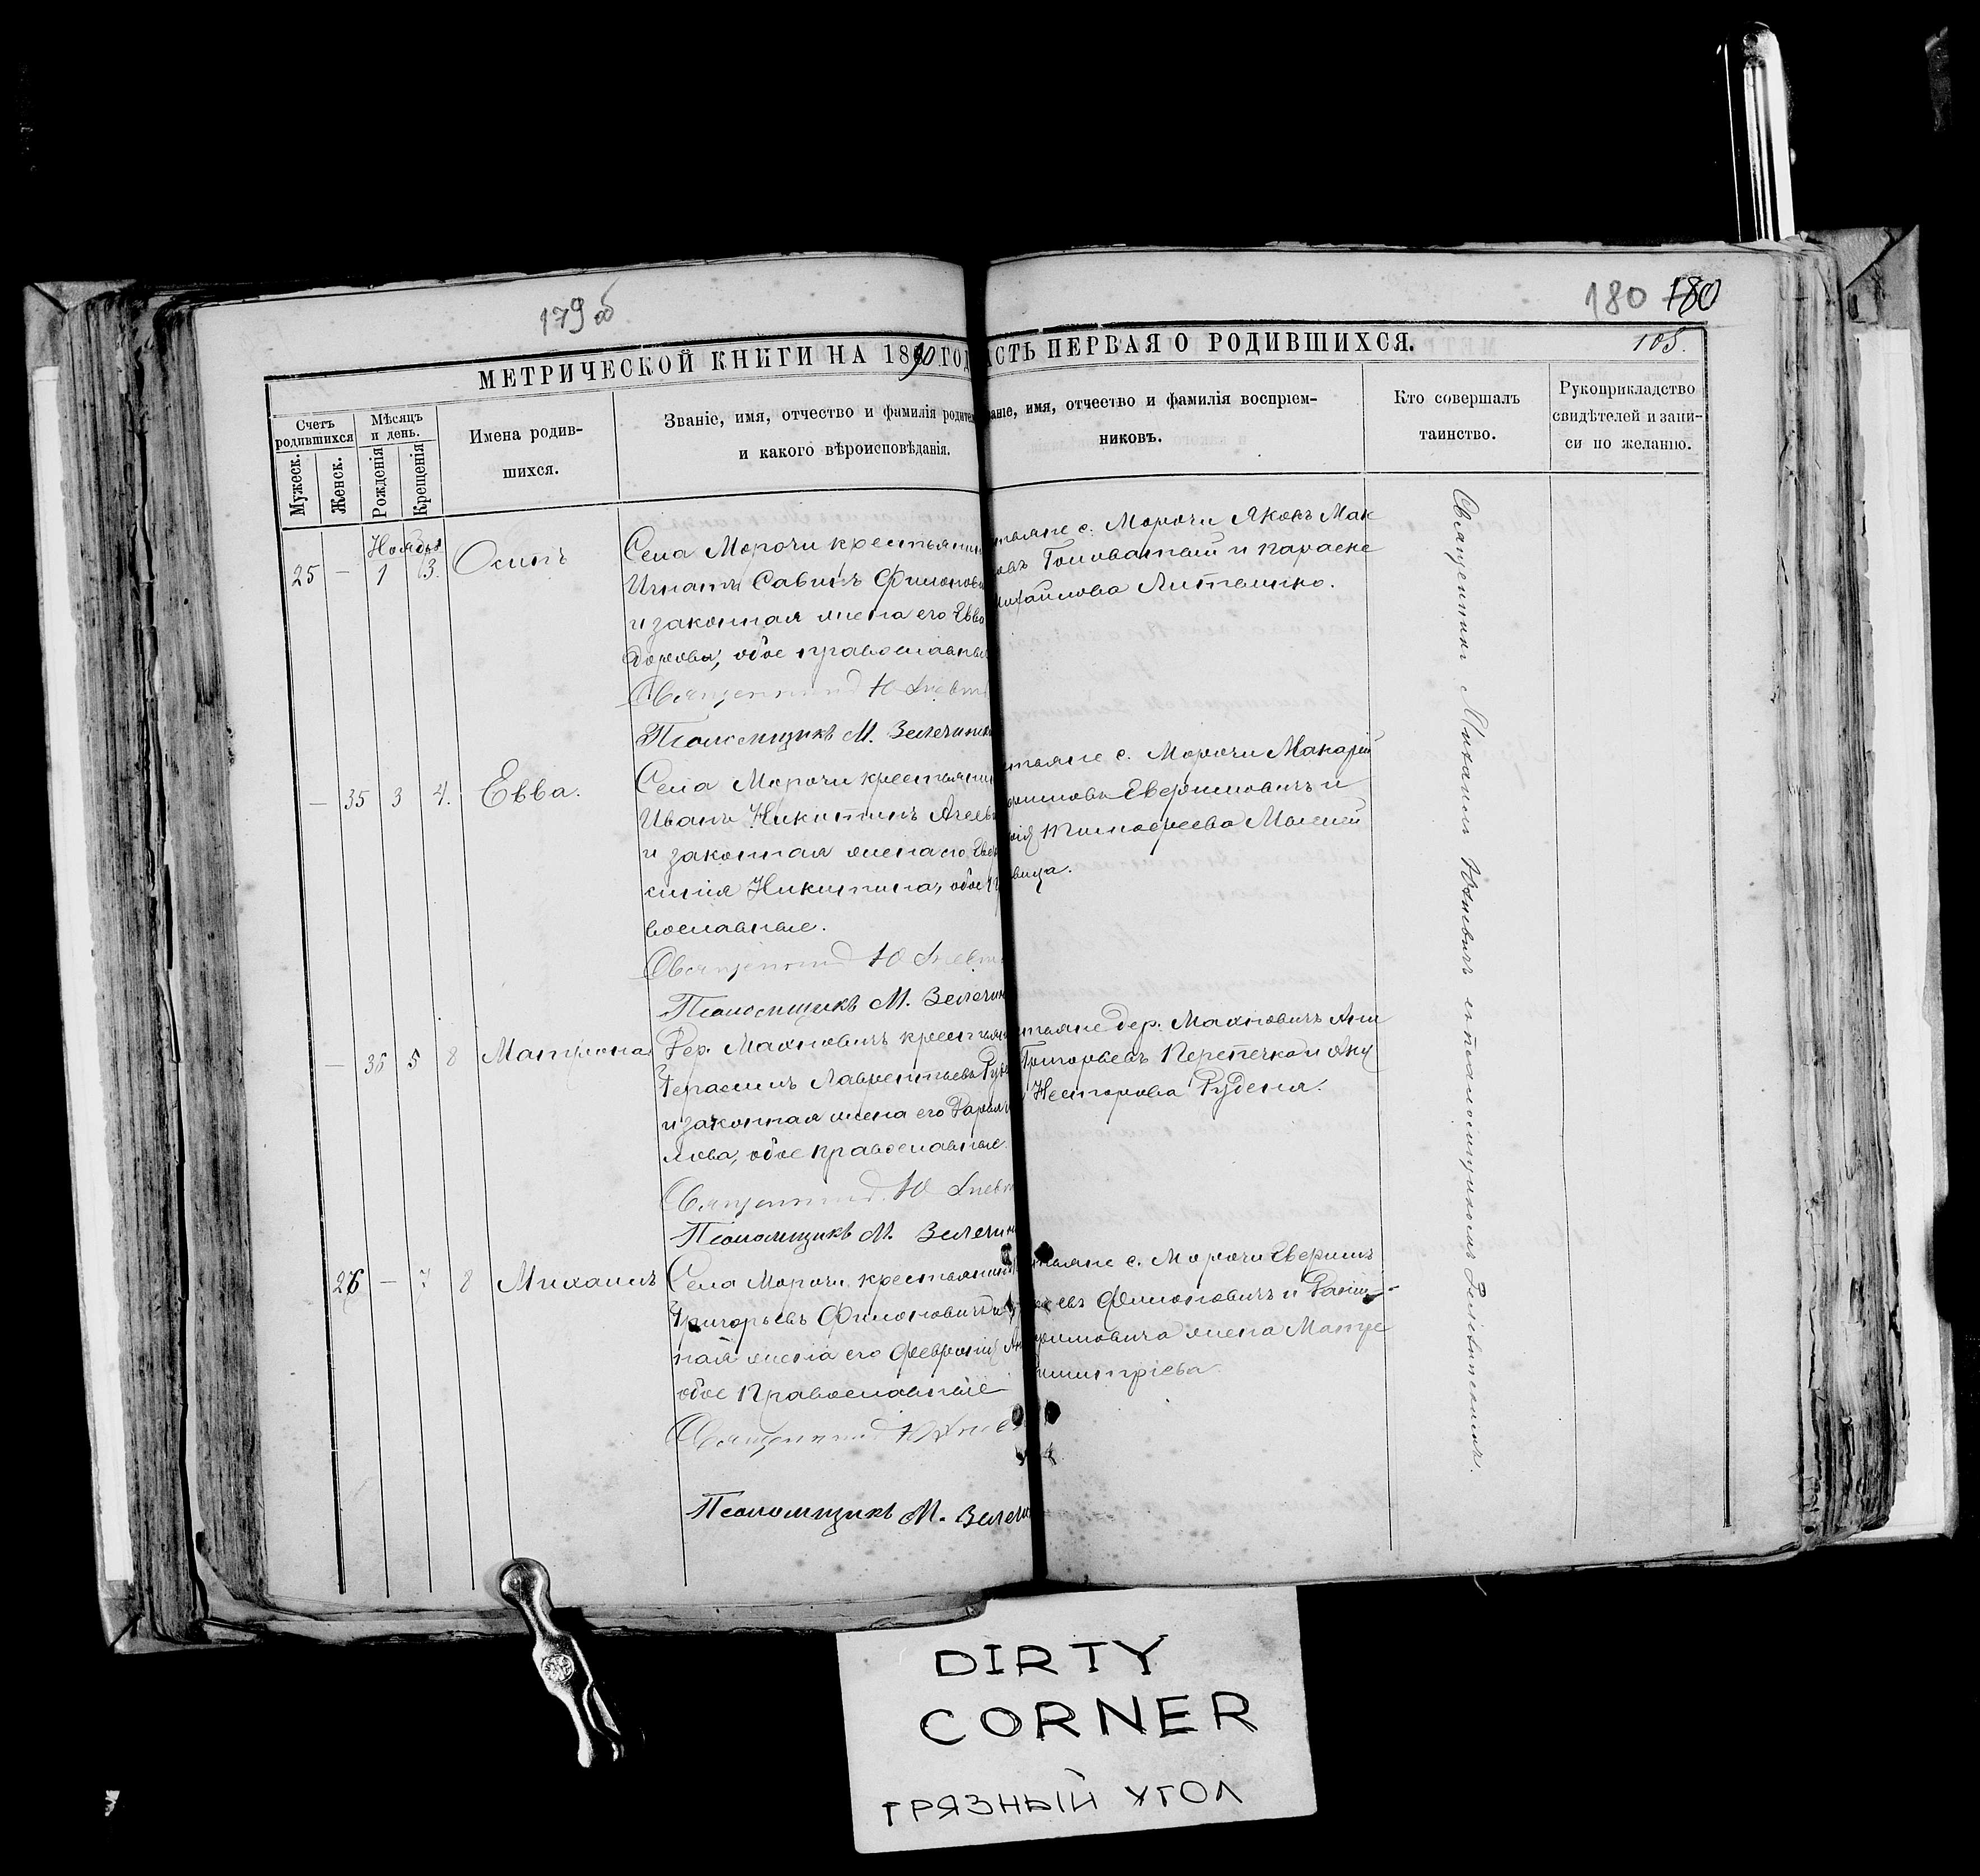 179 об
180 180
105.
МЕТРИЧЕСКОЙ КНИГИ НА 1890 ГОД
АСТЬ ПЕРВАЯ О РОДИВШИХСЯ.
Счетъ родившихся
Мужеск.
Женск.
Мѣсяцъ и день.
Рожденія
Крещенія
Имена родив-
шихся.
Званіе, имя, отчество и фамилія родител
и какого вѣроисповѣданія.
ваніе, имя, отчество и фамилія воспріем-
никовъ.
Кто совершалъ
таинство.
Рукоприкладство
свидѣтелей и запи-
си по желанію.
Ноября
25 — 1 3. Осипъ
Села Морочи крестьянин
Игнатъ Савинъ Филонови
и законная жена его Евдо
обое православныя
Священник Ю
Псаломщикъ М. Зелечинк
тьяне с. Морочи Яковъ Мак
овъ Головатый и Параске
ихайлова Литвинко.
— 35 3 4. Евва.
Села Морочи крестьянин
Иванъ Никитинъ Агееви
и законная жена его
Никитина, обое п
вославные.
Священник Ю
Псаломщикъ М. Зелечин
тьяне с. Морочи Макарій
и
Тимофеева
вица.
— 36 5 8 Матрона
Дер. Махновичъ крестьян
Герасимъ Лаврентьевъ Руд
и законная жена его
лова, обое православные.
Священник Ю
Псаломщикъ М. Зелечин
тьяне дер. Махновичъ
Григорьевъ Перепечко и
Несторова Руденя.
26 — 7 8 Михаилъ
Села Морочи крестьянин
Григорьевъ Филоновичъ и
ная жена его Февронія
обое Православные
Священник Ю
Псаломщикъ М. Зелечи
тьяне с. Морочи
евъ Филоновичъ и
жена
митріева.
Священникъ Михаилъ Юзневичъ с псаломщикомъ
DIRTY
CORNER
ГРЯЗНЫЙ УГОЛ